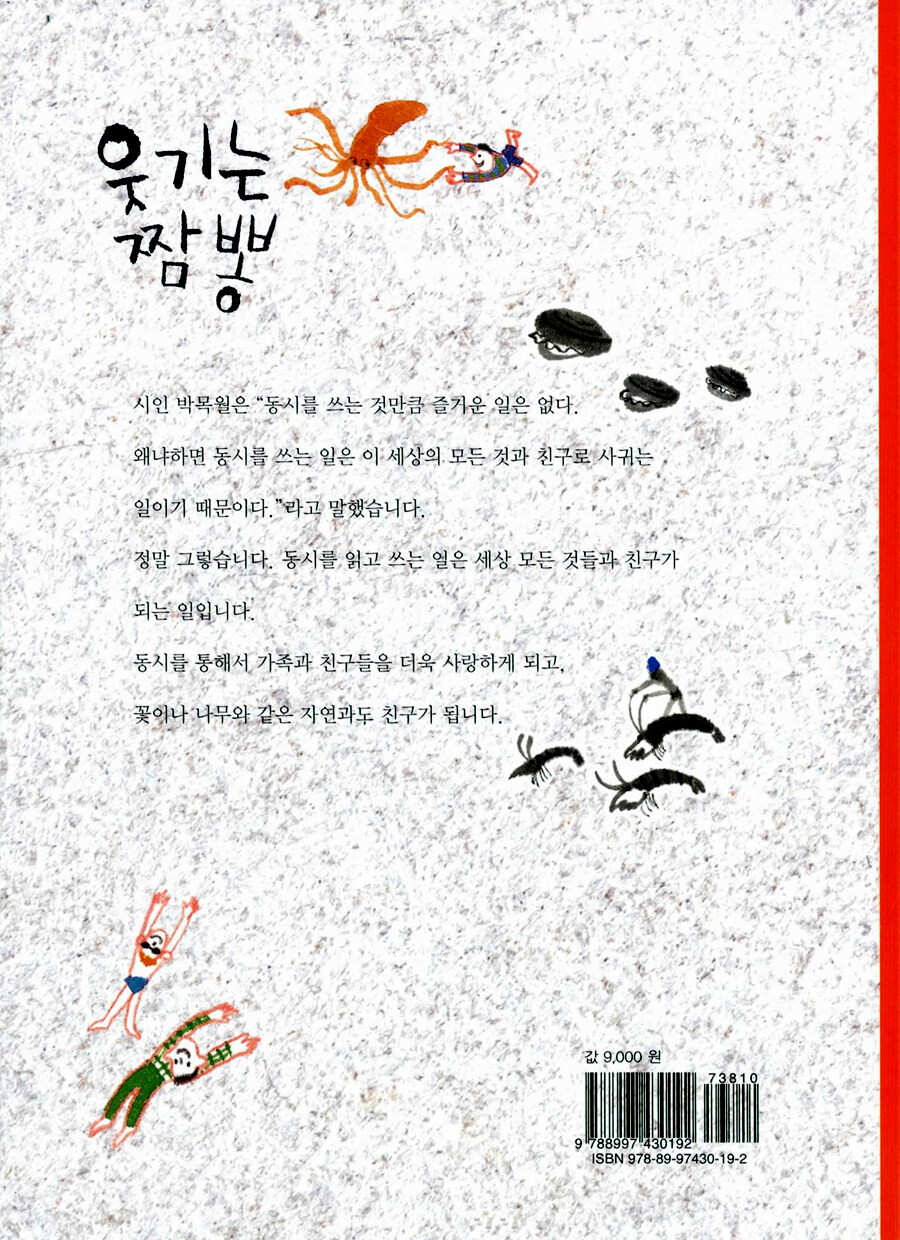 웃기는
짬뽕
시인 박목월은 “동시를 쓰는 것만큼 즐거운 일은 없다.
왜냐하면 동시를 쓰는 일은 이 세상의 모든 것과 친구로 사귀는
일이기 때문이다.”라고 말했습니다.
정말 그렇습니다. 동시를 읽고 쓰는 일은 세상 모든 것들과 친구가
되는 일입니다.
동시를 통해서 가족과 친구들을 더욱 사랑하게 되고,
꽃이나 나무와 같은 자연과도 친구가 됩니다.
값 9,000 원
73810
9 788997 430192
ISBN 978-89-97430-19-2